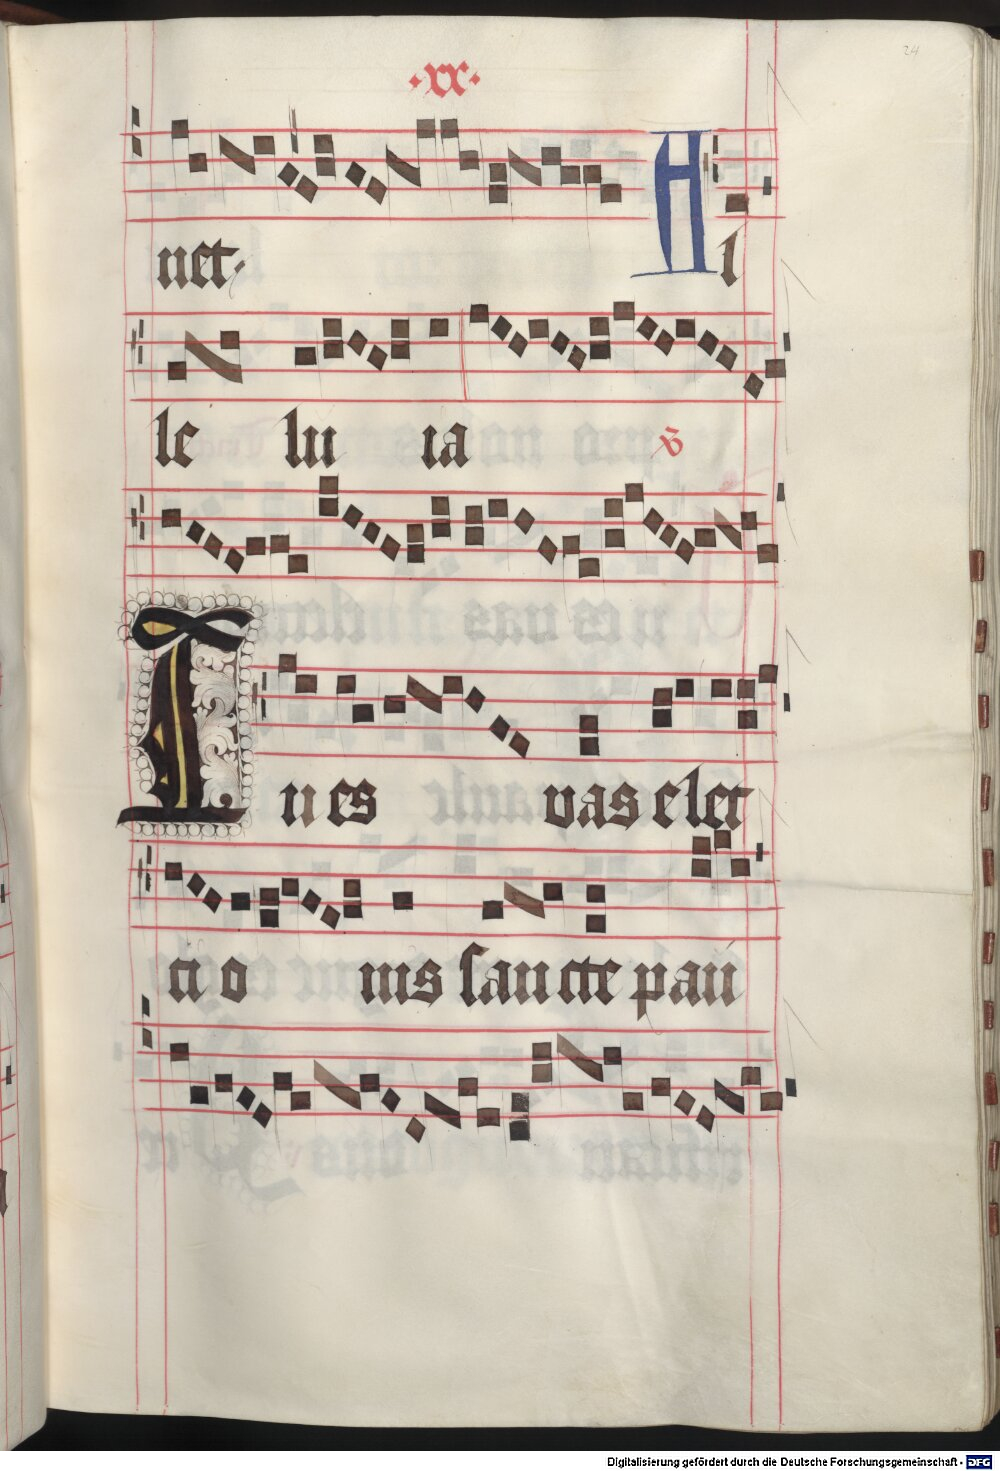 ·xx·
24
net· Al
le lu ia ℣
Tu es vas elec
ti o nis sancte pau
Digitalisierung gefördert durch die Deutsche Forschungsgemeinschaft - DFG